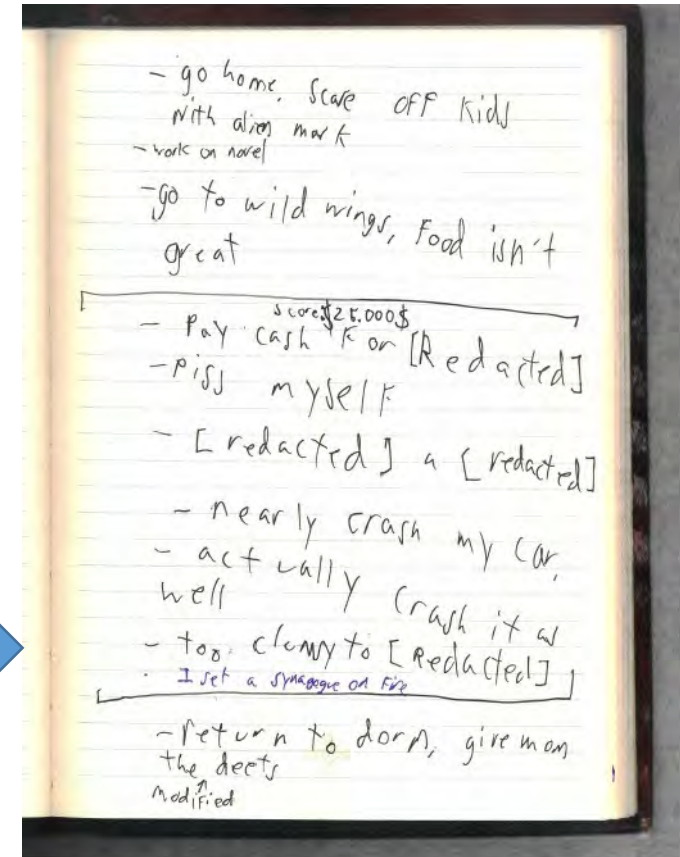 - go home, scare off kids
with alien mark
- work on novel
- go to wild wings, Food isn't
great
score:$25.000$
- Pay cash For [Redacted]
- Piss myself
- [redacted] a [redacted]
- nearly crash my car,
- actually crash it as
well
- too clumsy to [Redacted]
I set a synagogue on fire
- return to dorm, give mom
the deets
modified